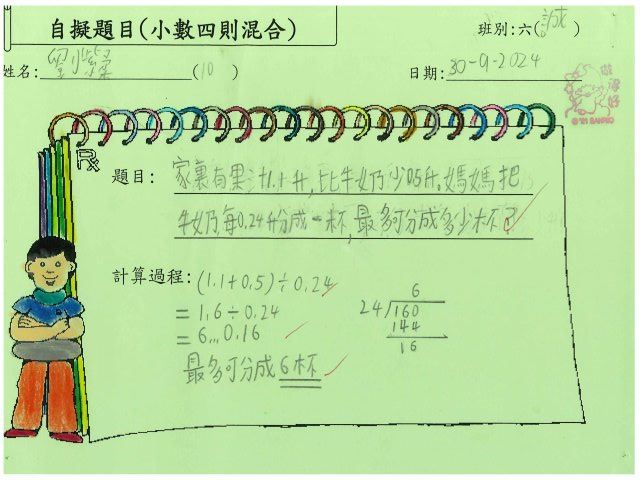 自擬題目(小數四則混合)
班別:六(誠)
姓名: (10)
日期:30-9-2024
做得好
© '81 SANRIO
題目: 家裏有果汁1.1升,比牛奶少0.5升。媽媽把
牛奶每0.24升分成一杯,最多可分成多少杯?
計算過程: (1.1+0.5)÷0.24
= 1.6÷0.24
= 6...0.16
最多可分成6杯
6
24 160
144
16